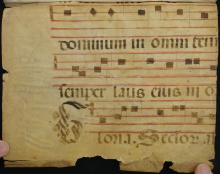 dominum in omni tem
semper laus eius in o
Gloria. Seculor. a